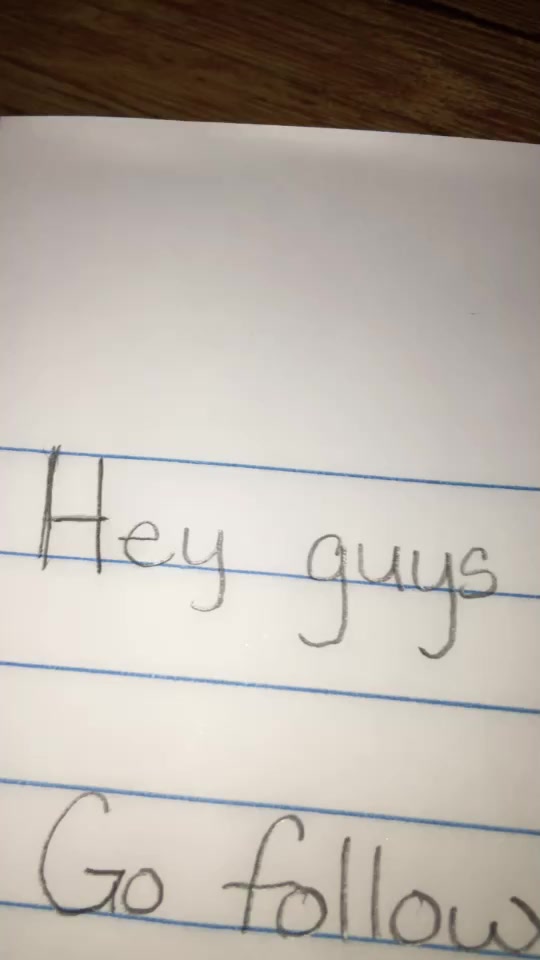 Hey guys
Go follow